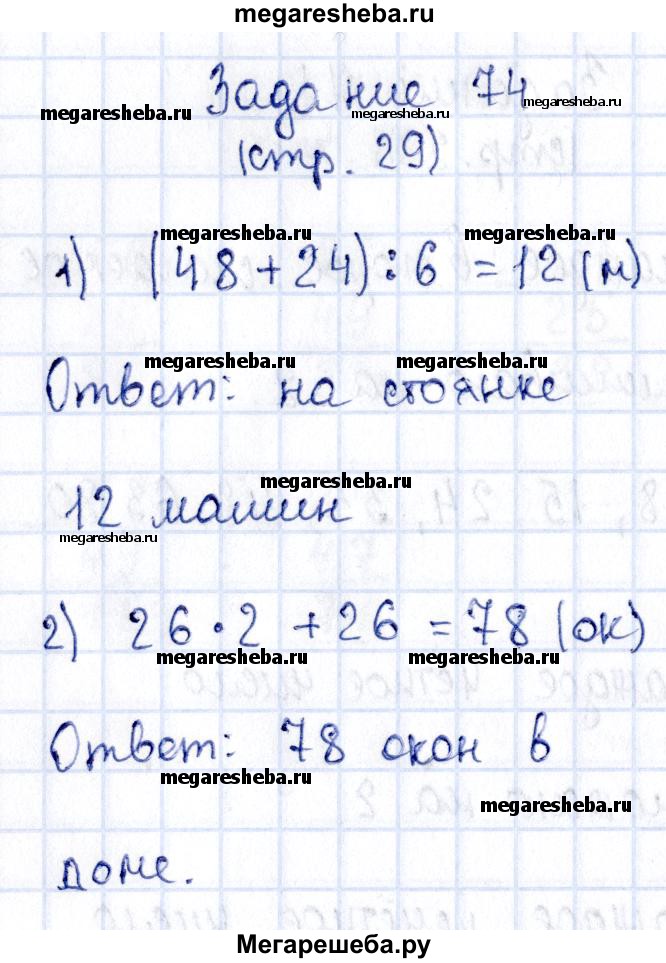 megaresheba.ru
Задание 74
megaresheba.ru megaresheba.ru megaresheba.ru
(стр. 29)
megaresheba.ru megaresheba.ru
1) (48+24):6 =12(м)
megaresheba.ru megaresheba.ru
Ответ: на стоянке
megaresheba.ru
12 машин
megaresheba.ru
2) 26·2 +26 =78 (ок)
megaresheba.ru megaresheba.ru
Ответ: 78 окон в
megaresheba.ru
megaresheba.ru
доме.
Мегарешеба.ру